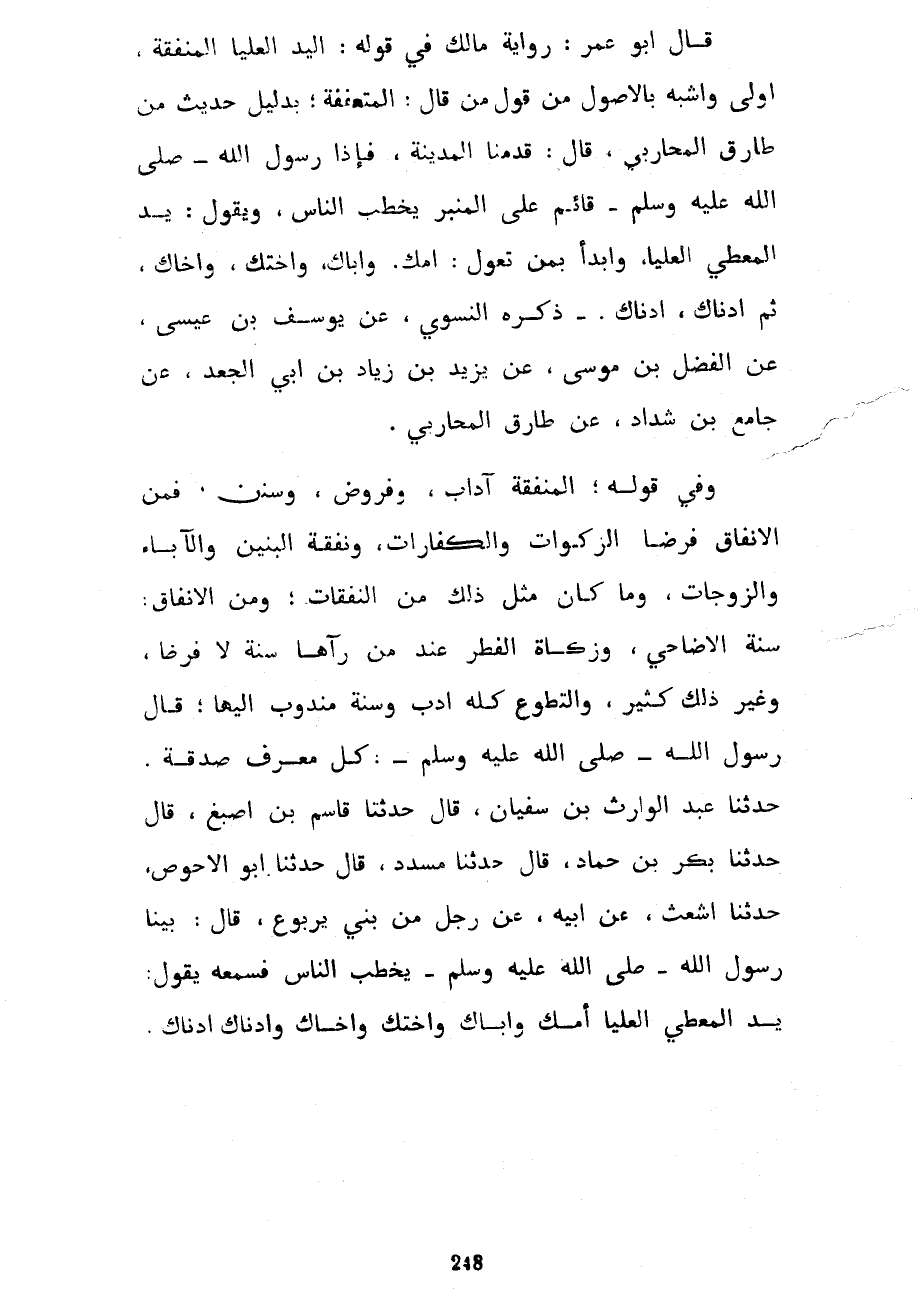 قال ابو عمر : رواية مالك في قوله : اليد العليا المنفقة ،
اولى واشبه بالاصول من قول من قال : المتعففة ؛ بدليل حديث من
طارق المحاربي ، قال : قدمنا المدينة ، فإذا رسول الله ـ صلى
الله عليه وسلم ـ قائم على المنبر يخطب الناس ، ويقول : يد
المعطي العليا، وابدأ بمن تعول : امك. واباك، واختك ، واخاك ،
ثم ادناك ، ادناك . ـ ذكره النسوي ، عن يوسف بن عيسى ،
عن الفضل بن موسى ، عن يزيد بن زياد بن ابي الجعد ، عن
جامع بن شداد ، عن طارق المحاربي .
وفي قوله ؛ المنفقة آداب ، وفروض ، وسنن . فمن
الانفاق فرضا الزكوات والكفارات، ونفقة البنين والآباء
والزوجات ، وما كان مثل ذلك من النفقات ؛ ومن الانفاق:
سنة الاضاحي ، وزكاة الفطر عند من رآها سنة لا فرضا ،
وغير ذلك كثير ، والتطوع كله ادب وسنة مندوب اليها ؛ قال
رسول الله ـ صلى الله عليه وسلم ـ : كل معرف صدقة .
حدثنا عبد الوارث بن سفيان ، قال حدثنا قاسم بن اصبغ ، قال
حدثنا بكر بن حماد، قال حدثنا مسدد ، قال حدثنا ابو الاحوص،
حدثنا اشعث ، عن ابيه ، عن رجل من بني يربوع ، قال : بينا
رسول الله ـ صلى الله عليه وسلم ـ يخطب الناس فسمعه يقول:
يد المعطي العليا أمك واباك واختك واخاك وادناك ادناك .
248